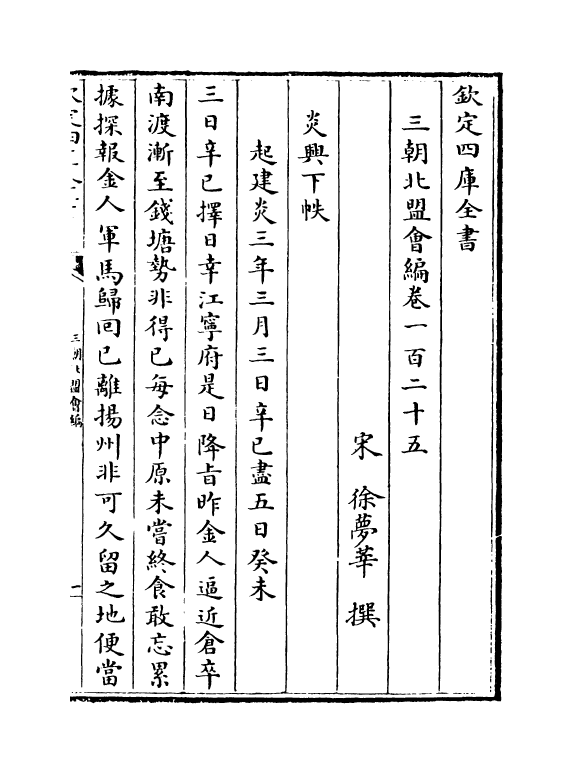 欽定四庫全書
三朝北盟會編卷一百二十五
宋 徐夢莘 撰
炎興下帙
起建炎三年三月三日辛巳盡五日癸未
三日辛巳擇日幸江寧府是日降旨昨金人逼近倉卒
南渡漸至錢塘勢非得已每念中原未嘗終食敢忘累
據探報金人軍馬歸回已離揚州非可久留之地便當
三朝北盟會編
一